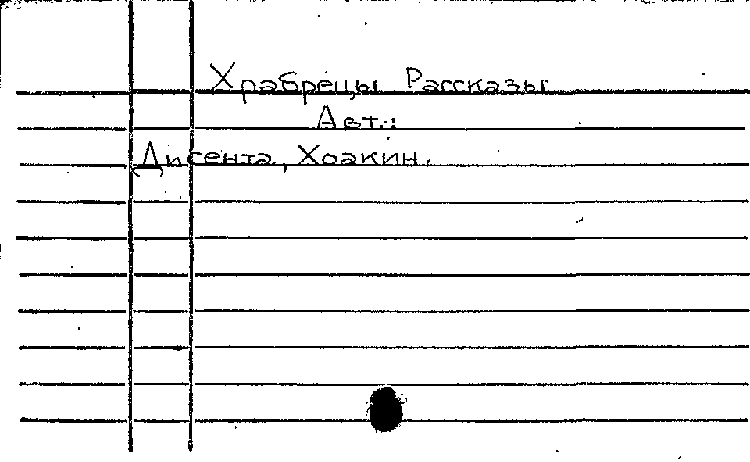 Храбрецы Рассказы
Авт.:
Дисента, Хоакин.